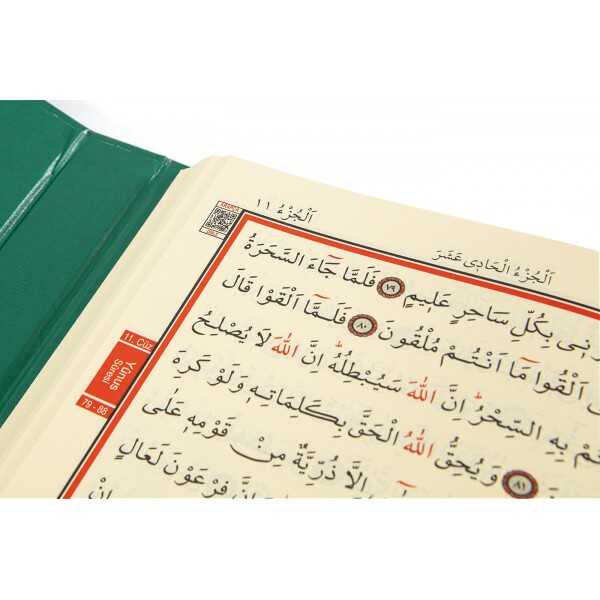 اَلْجُزْءُ ١١
اَلْجُزْءُ الْحَادٖى عَشَرَ
بِكُلِّ سَاحِرٍ عَلٖيمٍ ٧٩ فَلَمَّا جَٓاءَ السَّحَرَةُ
اَلْقُوا مَٓا اَنْتُمْ مُلْقُونَ ٨٠ فَلَمَّٓا اَلْقَوْا قَالَ
بِهِ السِّحْرُؕ اِنَّ اللّٰهَ سَيُبْطِلُهُؕ اِنَّ اللّٰهَ لَا يُصْلِحُ
٨١ وَيُحِقُّ اللّٰهُ الْحَقَّ بِكَلِمَاتِهٖ وَلَوْ كَرِهَ
اِلَّا ذُرِّيَّةٌ مِنْ قَوْمِهٖ عَلٰى
فِرْعَوْنَ لَعَالٍ
11. Cüz
Yûnus
Sûresi
79 - 88